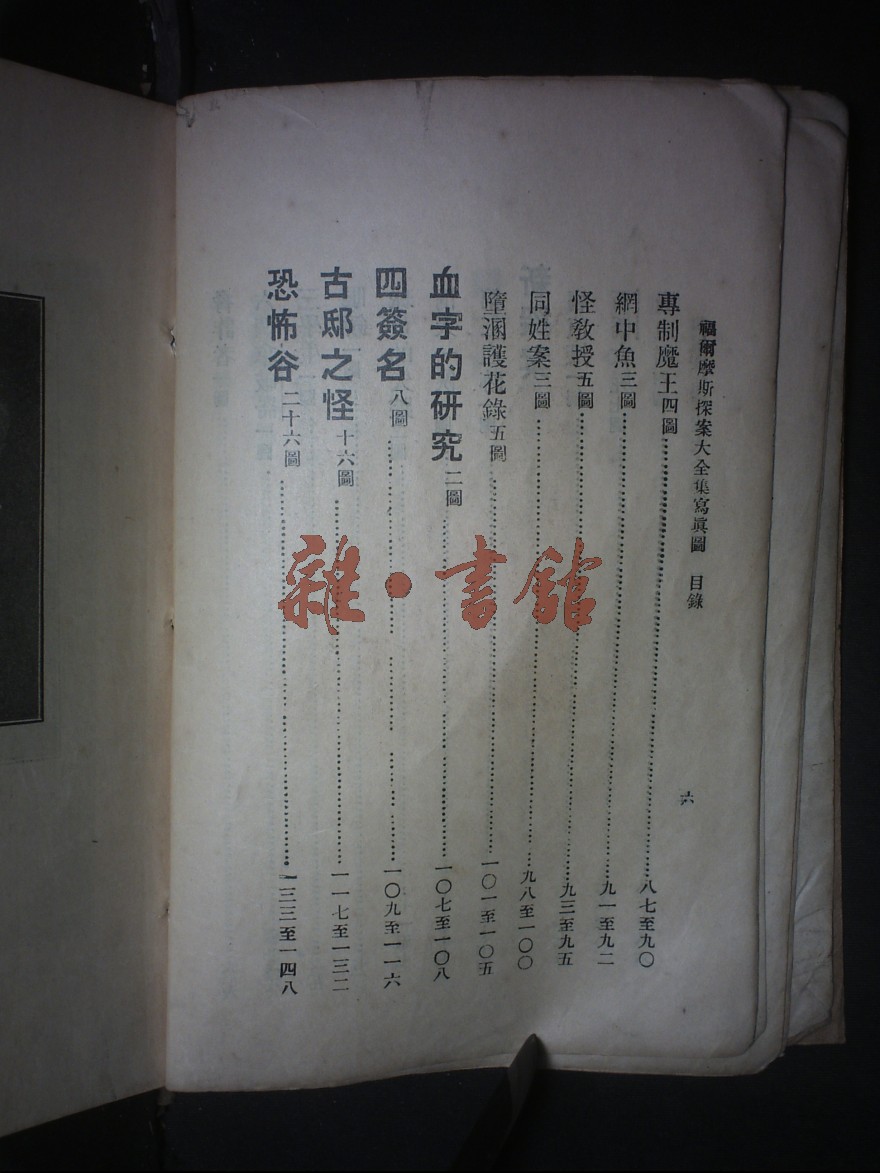 福爾摩斯探案大全集寫眞圖 目錄 六
專制魔王四圖……八七至九〇
網中魚三圖……九一至九二
怪敎授五圖……九三至九五
同姓案三圖……九八至一〇〇
墮溷護花錄五圖……一〇一至一〇五
血字的研究二圖……一〇七至一〇八
四簽名八圖……一〇九至一一六
古邸之怪十六圖……一一七至一三二
恐怖谷二十六圖……一三三至一四八
雜·書館